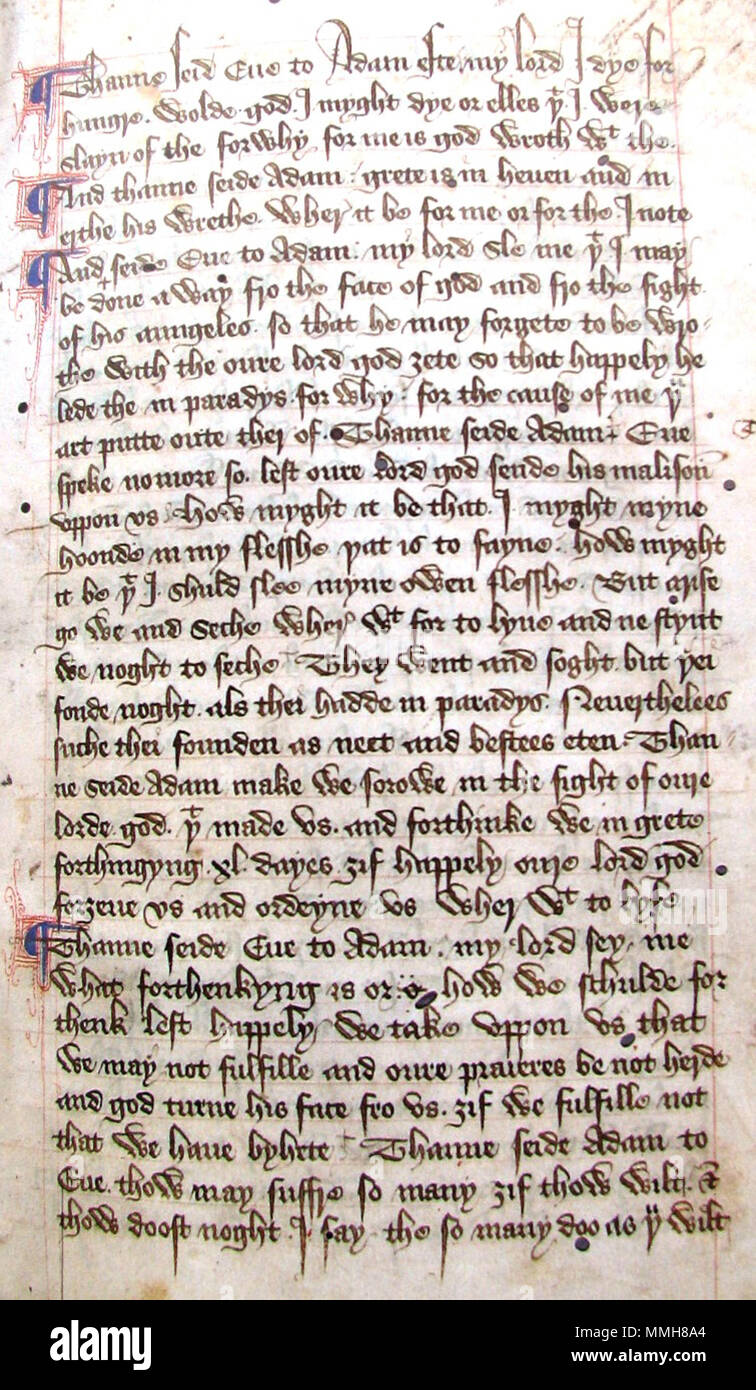 Thanne seid Eue to Adam este my lord I dye for
hungre. wolde god I myght dye or elles yͭ I were
slayn of the forwhy for me is god wroth wͭ the.
And thanne seide Adam: grete is in heuen and in
erthe his wrethe Wher it be for me or for the. I note
And seide Eue to Adam: my lord sle me yͭ I may
be done a way fro the face of god and fro the sight
of his aungeles. so that he may forgete to be wro-
the with the oure lord god zete so that happely he
lede the in paradys. for why: for the cause of me yͧ
art putte oute ther of. Thanne seide Adam: Eue
speke nomore so. lest oure lord god sende his malison
vppon vs. How myght it be that. I. myght myne
hoonde in my flesshe yat is to sayne. how myght
it be yͭ I. shuld slee myne owen flesshe. But arise
go we and seche wher wͭ for to lyue and ne stynt
we noght to seche They went and soght. but yei
fonde noght. als thei hadde in paradys. Neuerthelees
suche thei founden as neet and bestees eten. Than
ne seide Adam make we sorowe in the sight of oure
lorde god. yͭ made vs. and forthinke we in grete
forthingyng .xl. dayes. zif happely oure lord god
forzeue vs and ordeyne vs wher wͭ to lyfe
Thanne seide Eue to Adam. my lord sey me
what forthenkyng is or how we schulde for
thenk lest happely we take vppon vs that
we may not fulfille and oure praieres be not herde
and god turne his face fro vs. zif we fulfille not
that we haue byhete Thanne seide Adam to
Eue. thow may suffre so many zif thow wilt. &
thow doost noght. I. say the so many doo as yͧ wilt
alamy
alamy
Image ID: MMH8A4
www.alamy.com